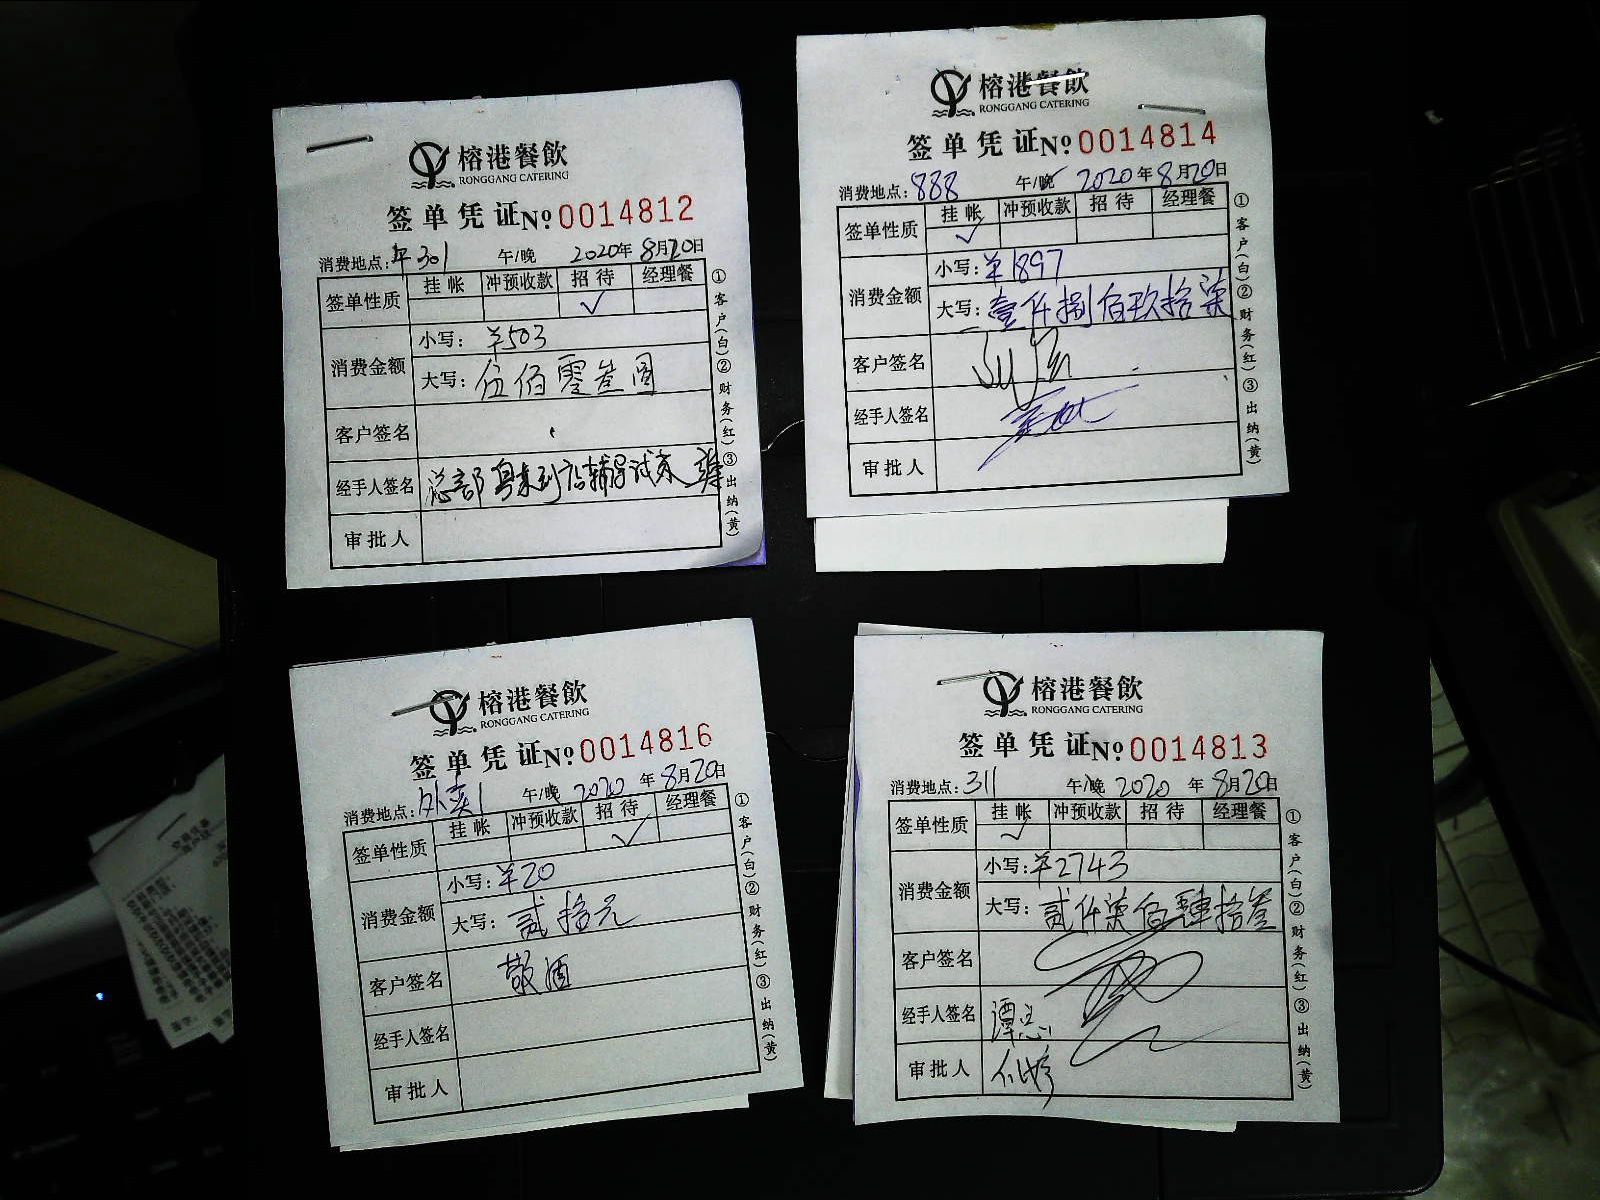 榕港餐飲
RONGGANG CATERING
签单凭证 No 0014812
消费地点: 301 午/晚 2020年8月20日
签单性质 挂帐 冲预收款 招待 经理餐
✓
消费金额 小写: ¥503
大写: 伍佰零叁圆
客户签名
经手人签名 总部粤菜到店辅导试菜
审批人
①客户(白)②财务(红)③出纳(黄)
榕港餐飲
RONGGANG CATERING
签单凭证 No 0014814
消费地点: 888 午/晚 2020年8月20日
签单性质 挂帐 冲预收款 招待 经理餐
✓
消费金额 小写: ¥1897
大写: 壹仟捌佰玖拾柒
客户签名
经手人签名
审批人
①客户(白)②财务(红)③出纳(黄)
榕港餐飲
RONGGANG CATERING
签单凭证 No 0014816
消费地点: 外卖1 午/晚 2020年8月20日
签单性质 挂帐 冲预收款 招待 经理餐
✓
消费金额 小写: ¥20
大写: 贰拾元
客户签名 敬酒
经手人签名
审批人
①客户(白)②财务(红)③出纳(黄)
榕港餐飲
RONGGANG CATERING
签单凭证 No 0014813
消费地点: 311 午/晚 2020年8月20日
签单性质 挂帐 冲预收款 招待 经理餐
✓
消费金额 小写: ¥2743
大写: 贰仟柒佰肆拾叁
客户签名
经手人签名
审批人
①客户(白)②财务(红)③出纳(黄)